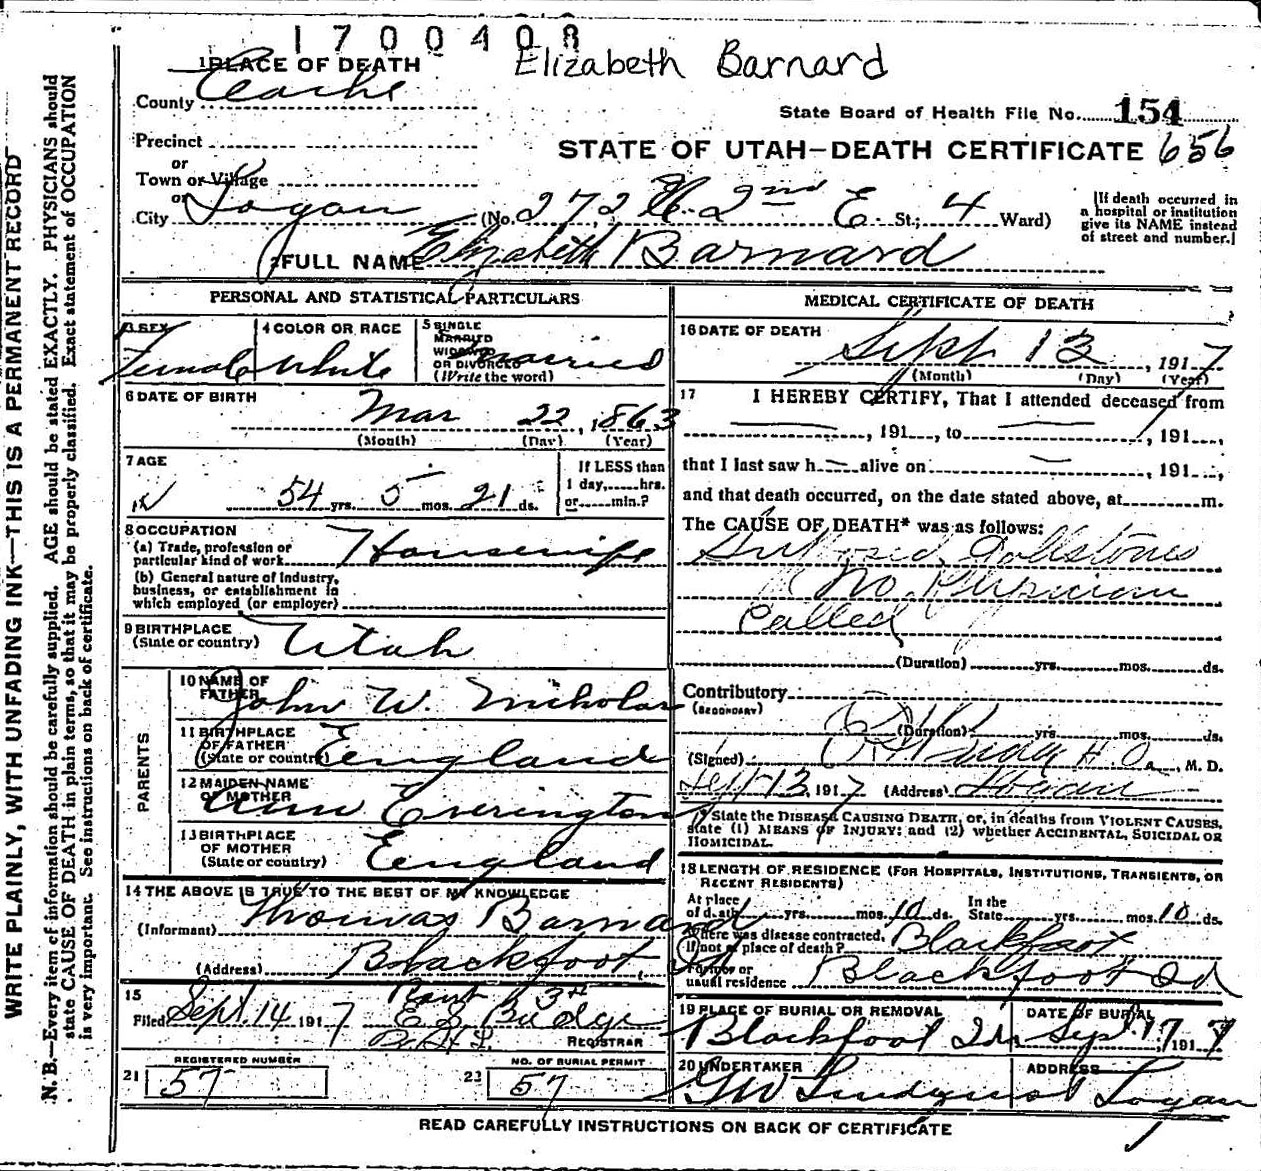 1700408
Elizabeth Barnard
1 PLACE OF DEATH
County Cache
State Board of Health File No. 154
Precinct
STATE OF UTAH—DEATH CERTIFICATE 656
or
Town or Village
or
City Logan (No. 272 N. 2nd E. St.; 4 Ward)
[If death occurred in a hospital or institution give its NAME instead of street and number.]
FULL NAME Elizabeth Barnard
PERSONAL AND STATISTICAL PARTICULARS
3 SEX Female
4 COLOR OR RACE White
5 SINGLE MARRIED WIDOWED OR DIVORCED (Write the word) Married
6 DATE OF BIRTH Mar 22, 1863
(Month) (Day) (Year)
7 AGE 54 yrs. 5 mos. 21 ds.
If LESS than 1 day, hrs. or min.?
8 OCCUPATION
(a) Trade, profession or particular kind of work Housewife
(b) General nature of industry, business, or establishment in which employed (or employer)
9 BIRTHPLACE (State or country) Utah
PARENTS
10 NAME OF FATHER John W. Nicholas
11 BIRTHPLACE OF FATHER (State or country) England
12 MAIDEN NAME OF MOTHER Ann Everington
13 BIRTHPLACE OF MOTHER (State or country) England
14 THE ABOVE IS TRUE TO THE BEST OF MY KNOWLEDGE
(Informant) Thomas Barnard
(Address) Blackfoot, Id
15
Filed Sept. 14 1917 E S Budge
REGISTRAR
REGISTERED NUMBER
21 57
NO. OF BURIAL PERMIT
22 57
MEDICAL CERTIFICATE OF DEATH
16 DATE OF DEATH
Sept 13, 1917
(Month) (Day) (Year)
17 I HEREBY CERTIFY, That I attended deceased from
, 191 , to , 191 ,
that I last saw h alive on , 191 ,
and that death occurred, on the date stated above, at m.
The CAUSE OF DEATH* was as follows:
Supposed Gallstones
No Physician
Called
(Duration) yrs. mos. ds.
Contributory
(SECONDARY)
(Duration) yrs. mos. ds.
(Signed) Budge H.O., M. D.
Sept 13, 1917 (Address) Logan
* State the DISEASE CAUSING DEATH, or, in deaths from VIOLENT CAUSES, state (1) MEANS OF INJURY: and (2) whether ACCIDENTAL, SUICIDAL OR HOMICIDAL.
18 LENGTH OF RESIDENCE (FOR HOSPITALS, INSTITUTIONS, TRANSIENTS, OR RECENT RESIDENTS)
At place of death yrs. mos. 10 ds. In the State yrs. mos. 10 ds.
Where was disease contracted, if not at place of death? Blackfoot
Former or usual residence Blackfoot Id
19 PLACE OF BURIAL OR REMOVAL Blackfoot Ida
DATE OF BURIAL Sep. 17, 1917
20 UNDERTAKER GW Lindquist
ADDRESS Logan
READ CAREFULLY INSTRUCTIONS ON BACK OF CERTIFICATE
WRITE PLAINLY, WITH UNFADING INK—THIS IS A PERMANENT RECORD
N. B.—Every item of information should be carefully supplied. AGE should be stated EXACTLY. PHYSICIANS should
state CAUSE OF DEATH in plain terms, so that it may be properly classified. Exact statement of OCCUPATION
is very important. See instructions on back of certificate.